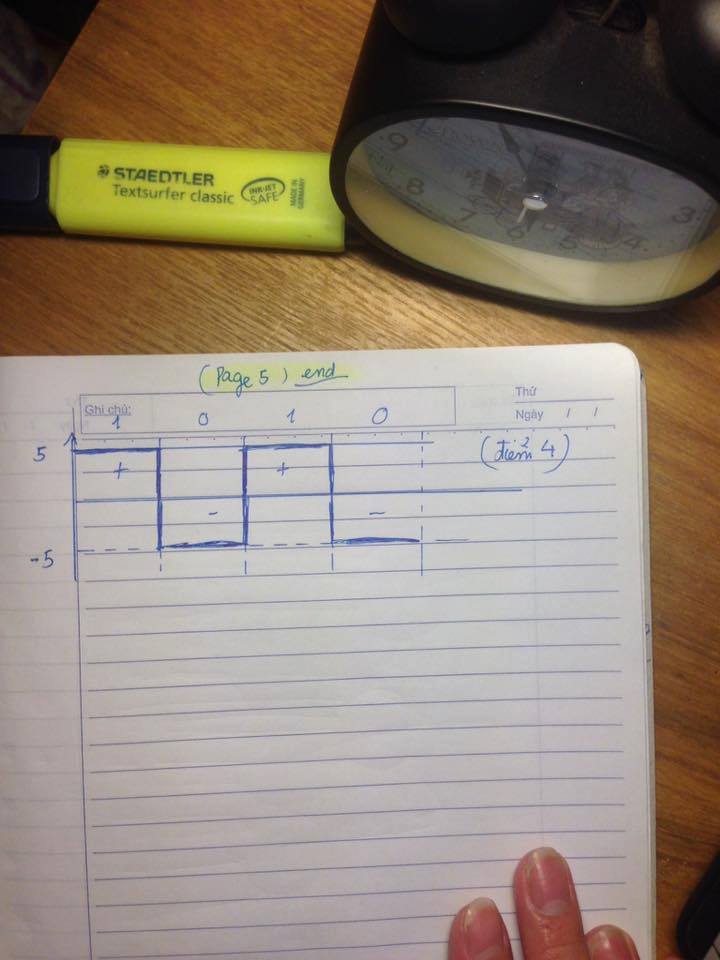 STAEDTLER
Textsurfer classic
INK-JET
SAFE
MADE IN
GERMANY
9
8
7
6
5
4
3
(Page 5) end
Ghi chú:
Thứ
Ngày / /
1 0 1 0
5
(điểm 4)
+ +
- -
-5